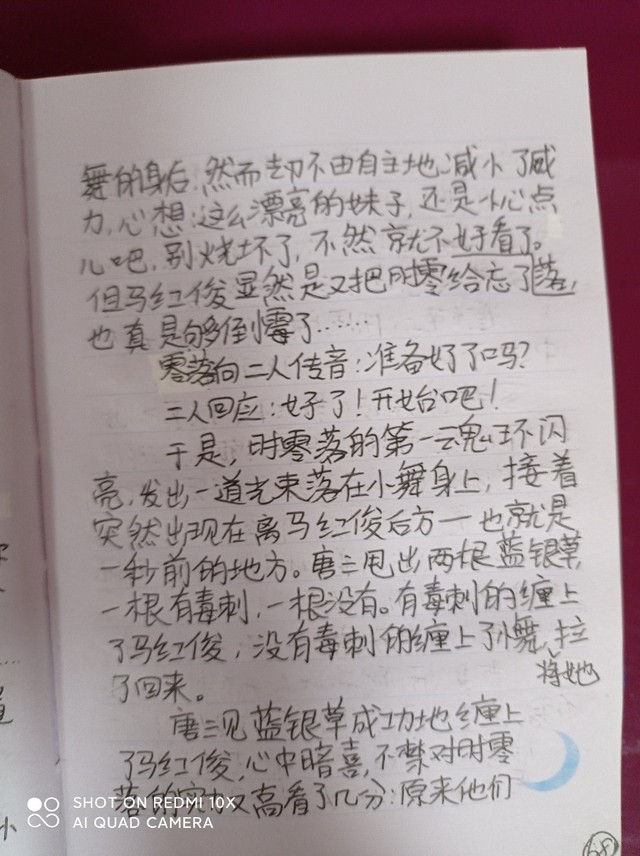 舞的身后,然而却不由自主地减小了威
力,心想:这么漂亮的妹子,还是小心点
儿吧,别烧坏了,不然就不好看了。
但马红俊显然是又把时零给忘了落,
也真是够倒霉了……
零落向二人传音:准备好了吗?
二人回应:好了!开始吧!
于是,时零落的第一魂环闪
亮,发出一道光束落在小舞身上,接着
突然出现在离马红俊后方一也就是
一秒前的地方。唐三甩出两根蓝银草,
一根有毒刺,一根没有。有毒刺的缠上
了马红俊,没有毒刺的缠上了小舞,拉
将她
了回来。
唐三见蓝银草成功地缠上
了马红俊,心中暗喜,不禁对时零
落的实力又高看了几分:原来他们
68
小
SHOT ON REDMI 10X
AI QUAD CAMERA